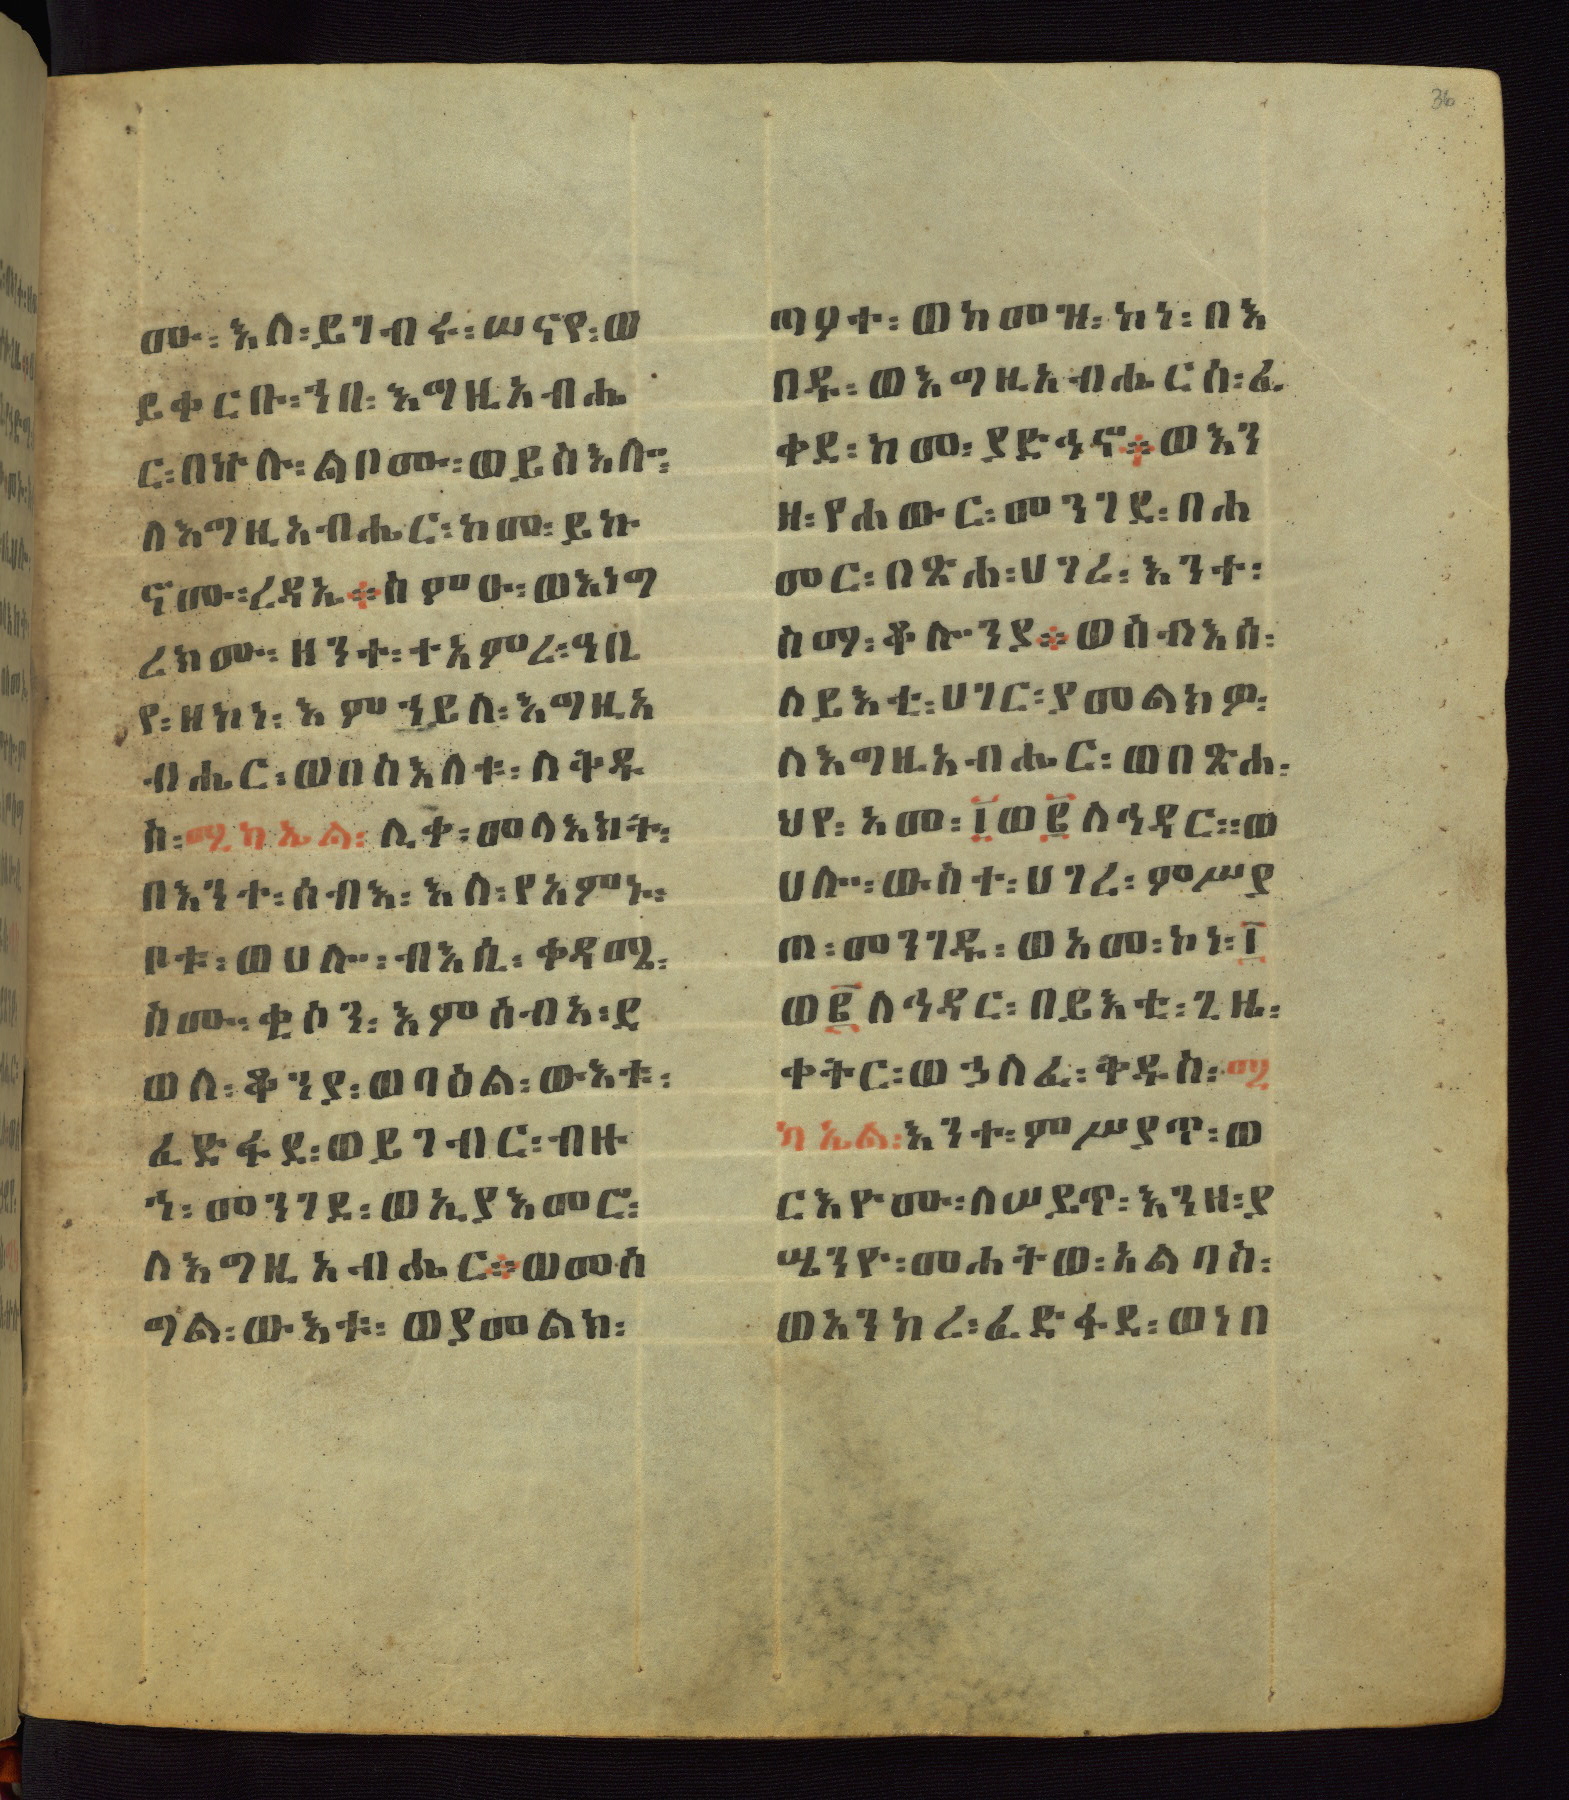 36
ሙ፡ እለ፡ ይገብሩ፡ ሠናየ፡ ወ
ይቀርቡ፡ ኀበ፡ እግዚአብሔ
ር፡ በኵሉ፡ ልቦሙ፡ ወይስእሉ፡
ለእግዚአብሔር፡ ከመ፡ ይኩ
ኖሙ፡ ረዳኤ፨ ስምዑ፡ ወእነግ
ረክሙ፡ ዘንተ፡ ተአምረ፡ ዓቢ
የ፡ ዘኮነ፡ እምኀይለ፡ እግዚአ
ብሔር፡ ወበስእለቱ፡ ለቅዱ
ስ፡ ሚካኤል፡ ሊቀ፡ መላእክት፡
በእንተ፡ ሰብእ፡ እለ፡ የአምኑ፡
ቦቱ፡ ወሀሎ፡ ብእሲ፡ ቀዳሚ፡
ስሙ፡ ቂሶን፡ እምሰብአ፡ ደ
ወለ፡ ቆንያ፡ ወባዕል፡ ውእቱ፡
ፈድፋደ፡ ወይገብር፡ ብዙ
ኀ፡ መንገደ፡ ወኢያአመሮ፡
ለእግዚአብሔር፨ ወመስ
ግል፡ ውእቱ፡ ወያመልክ፡
ጣዖተ፡ ወከመዝ፡ ኮነ፡ በእ
በዱ፡ ወእግዚአብሔርሰ፡ ፈ
ቀደ፡ ከመ፡ ያድኅኖ፨ ወእን
ዘ፡ የሐውር፡ መንገደ፡ በሐ
መር፡ በጽሐ፡ ሀገረ፡ እንተ፡
ስማ፡ ቆሎንያ፨ ወሰብአሰ፡
ለይእቲ፡ ሀገር፡ ያመልክዎ፡
ለእግዚአብሔር፡ ወበጽሐ፡
ህየ፡ አመ፡ ፲ወ፪ለኅዳር፡፡ ወ
ሀሎ፡ ውስተ፡ ሀገረ፡ ምሥያ
ጠ፡ መንገዱ፡ ወአመ፡ ኮነ፡ ፲
ወ፪ለኅዳር፡ በይእቲ፡ ጊዜ፡
ቀትር፡ ወኃለፈ፡ ቅዱስ፡ ሚ
ካኤል፡ እንተ፡ ምሥያጥ፡ ወ
ርእዮሙ፡ ለሠያጥ፡ እንዘ፡ ያ
ሤንዮ፡ መሐትወ፡ አልባሰ፡
ወአንከረ፡ ፈድፋደ፡ ወነበ